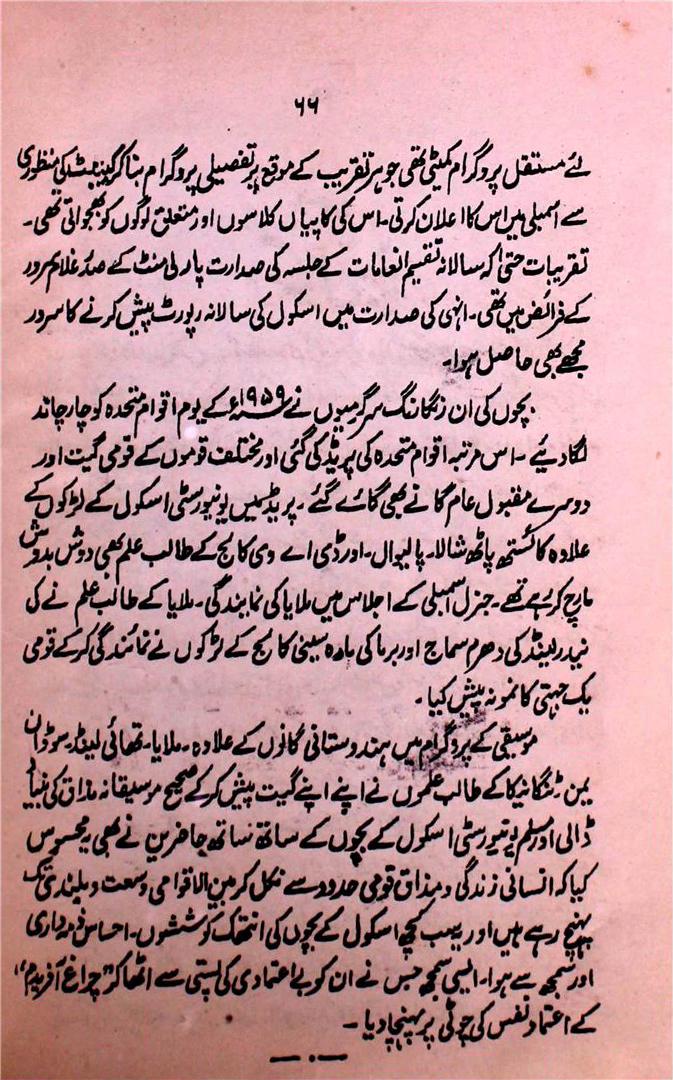 ۶۶
لئے مستقل پروگرام کمیٹی تھی جو ہر تقریب کے موقع پر تفصیلی پروگرام بنا کر کیبنٹ کی منظوری
سے اسمبلی میں اس کا اعلان کرتی۔ اس کی کاپیاں کلاسوں اور متعلق لوگوں کو بھجواتی تھی۔
تقریبات حتیٰ کہ سالانہ تقسیم انعامات کے جلسہ کی صدارت پارلی منٹ کے صدر غلام سرور
کے فرائض میں تھی۔ انہی کی صدارت میں اسکول کی سالانہ رپورٹ پیش کرنے کا سرور
مجھے بھی حاصل ہوا۔
بچوں کی ان رنگارنگ سرگرمیوں نے ۱۹۵۹ء کے یوم اقوام متحدہ کو چار چاند
لگا دیئے۔ اس مرتبہ اقوام متحدہ کی پریڈ کی گئی اور مختلف قوموں کے قومی گیت اور
دوسرے مقبول عام گانے بھی گائے گئے۔ پریڈ میں یونیورسٹی اسکول کے لڑکوں کے
علاوہ کائستھ پاٹھ شالا۔ پالیوال۔ اور ڈی اے وی کالج کے طالب علم بھی دوش بدوش
مارچ کر رہے تھے۔ جنرل اسمبلی کے اجلاس میں ملایا کی نمایندگی۔ ملایا کے طالب علم نے کی
نیدرلینڈ کی دھرم سماج اور برما کی بارہ سینی کالج کے لڑکوں نے نمائندگی کر کے قومی
یک جہتی کا نمونہ پیش کیا۔
موسیقی کے پروگرام میں ہندوستانی گانوں کے علاوہ۔ ملایا۔ تھائی لینڈ۔ سوڈان
یمن۔ ٹنگانیکا کے طالب علموں نے اپنے اپنے گیت پیش کر کے صحیح موسیقانہ مذاق کی بنیاد
ڈالی اور مسلم یونیورسٹی اسکول کے بچوں کے ساتھ ساتھ حاضرین نے بھی یہ محسوس
کیا کہ انسانی زندگی و مذاق قومی حدود سے نکل کر بین الاقوامی وسعت و بلندی تک
پہنچ رہے ہیں اور یہ سب کچھ اسکول کے بچوں کی انتھک کوششوں۔ احساس ذمہ داری
اور سمجھ سے ہوا۔ ایسی سمجھ جس نے ان کو بے اعتمادی کی پستی سے اٹھا کر "چراغ آفریدم"
کے اعتماد نفس کی چوٹی پر پہنچا دیا۔